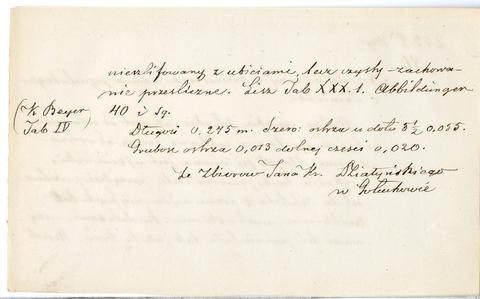 nieszlifowany z ubiciami, lecz czysty - zachowa-
nie prześliczne. Lisz Tab XXX. 1. Abbildungen
40 i Sq.
(K Beyer
Tab IV)
Długość 0,275 m. Szero: ostrza u dołu 8½ 0,055.
Grubość ostrza 0,013 dolnej części 0,020.
Ze Zbiorów Jana Hr. Działyńskiego
w Gołuchowie